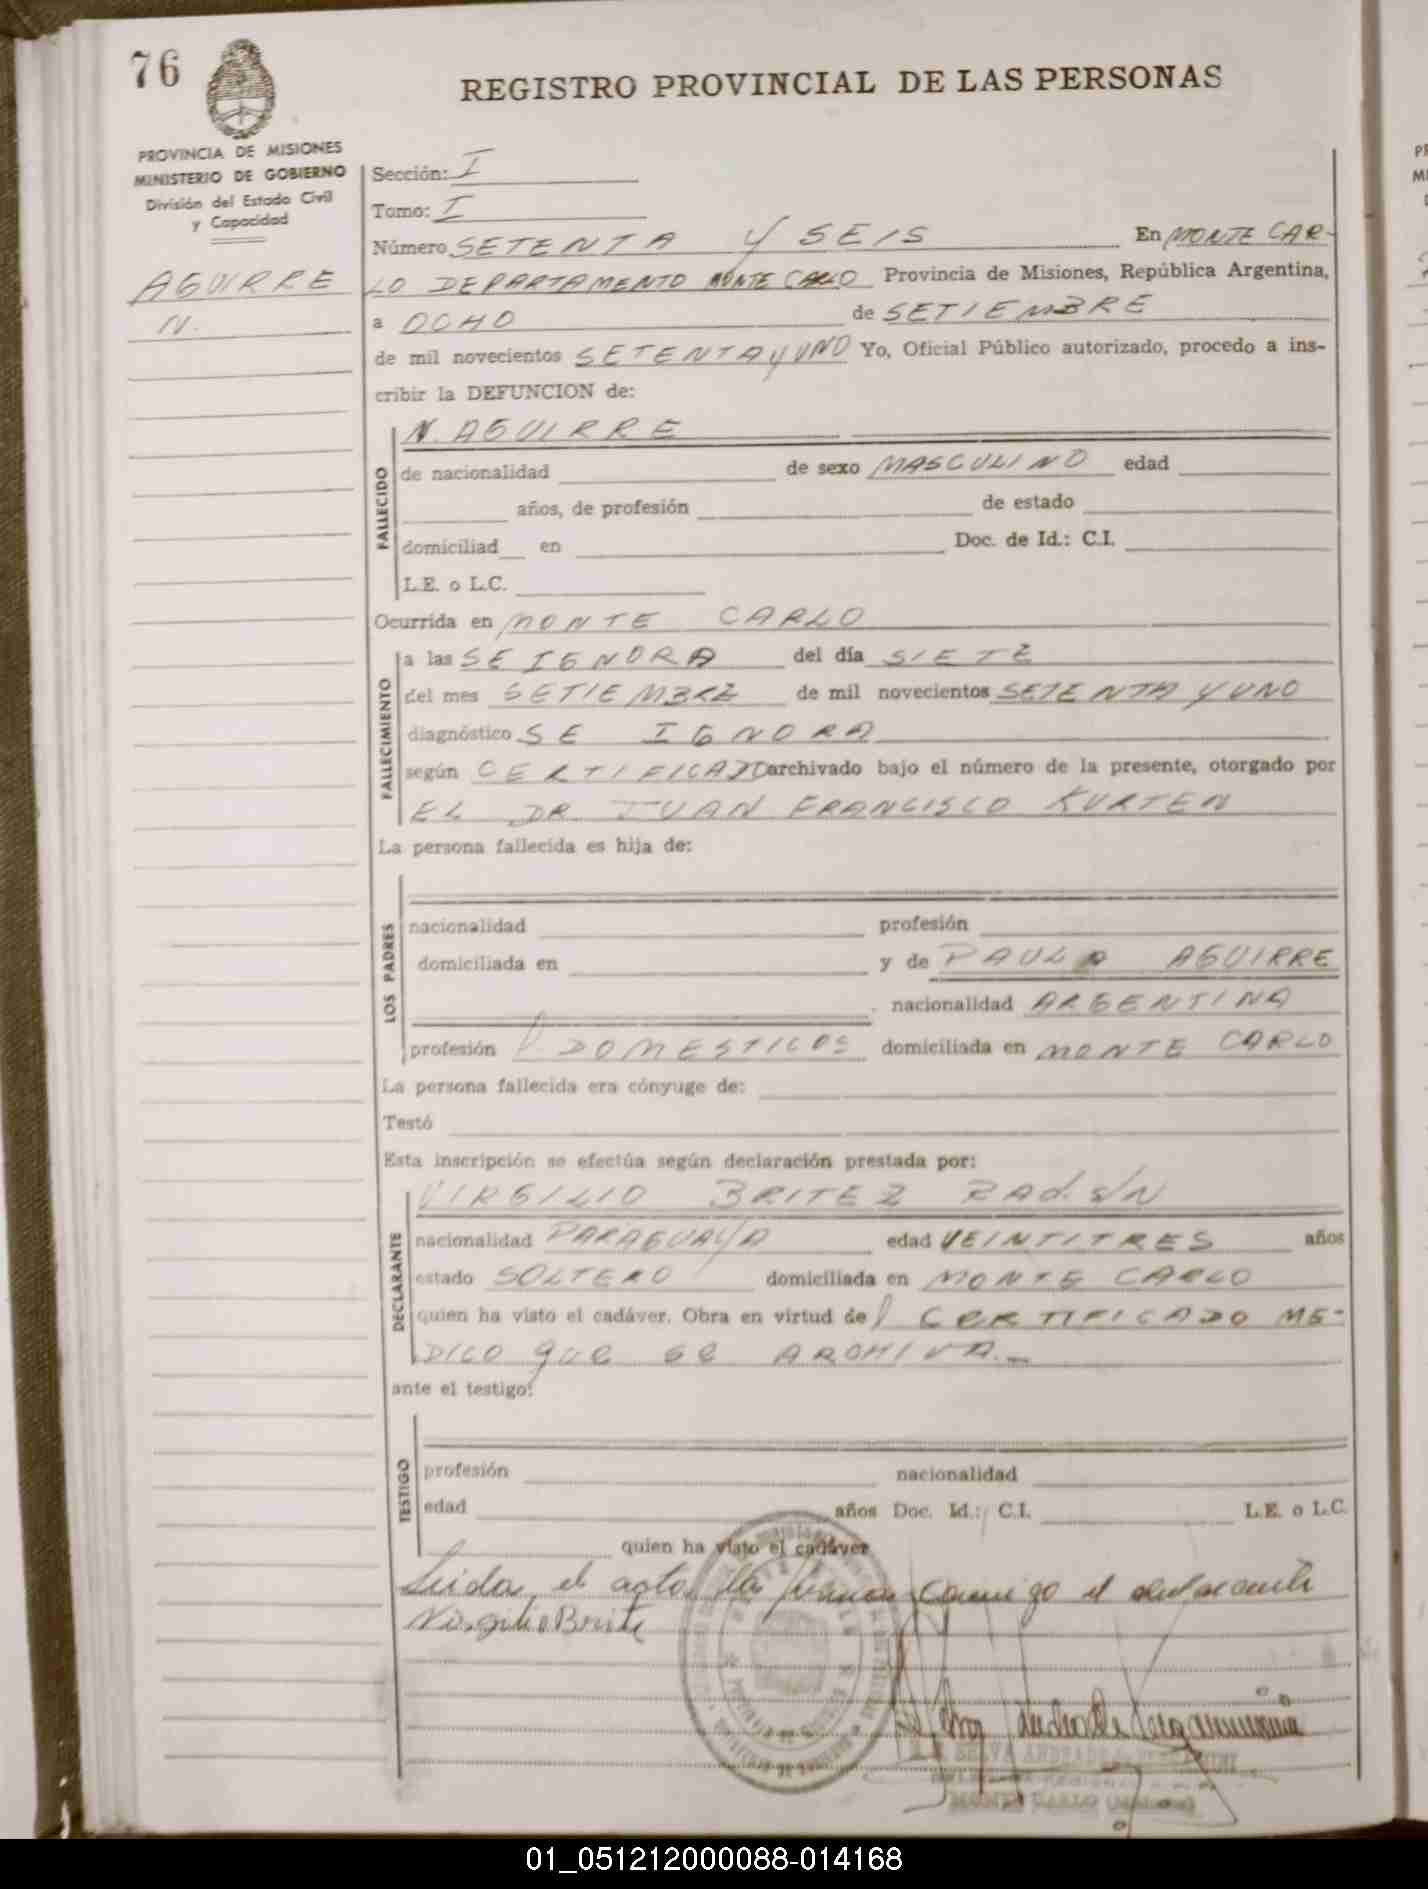 76
REGISTRO PROVINCIAL DE LAS PERSONAS
PROVINCIA DE MISIONES
MINISTERIO DE GOBIERNO
División del Estado Civil
y Capacidad
AGUIRRE
N.
Sección: I
Tomo: I
Número SETENTA Y SEIS En MONTE CAR-
LO DEPARTAMENTO MONTE CARLO Provincia de Misiones, República Argentina,
a OCHO de SETIEMBRE
de mil novecientos SETENTA y UNO Yo, Oficial Público autorizado, procedo a ins-
cribir la DEFUNCION de:
FALLECIDO
N. AGUIRRE
de nacionalidad de sexo MASCULINO edad
años, de profesión de estado
domiciliad en Doc. de Id.: C.I.
L.E. o L.C.
Ocurrida en MONTE CARLO
FALLECIMIENTO
a las SE IGNORA del día SIETE
del mes SETIEMBRE de mil novecientos SETENTA Y UNO
diagnóstico SE IGNORA
según CERTIFICADO archivado bajo el número de la presente, otorgado por
EL DR. JUAN FRANCISCO KURTEN
La persona fallecida es hija de:
LOS PADRES
nacionalidad profesión
domiciliada en y de PAULA AGUIRRE
nacionalidad ARGENTINA
profesión DOMESTICOS domiciliada en MONTE CARLO
La persona fallecida era cónyuge de:
Testó
Esta inscripción se efectúa según declaración prestada por:
DECLARANTE
VIRGILIO BRITEZ
nacionalidad PARAGUAYA edad VEINTITRES años
estado SOLTERO domiciliada en MONTE CARLO
quien ha visto el cadáver. Obra en virtud de l CERTIFICADO ME-
DICO que se ARCHIVA.-
ante el testigo:
TESTIGO
profesión nacionalidad
edad años Doc. Id.: C.I. L.E. o L.C.
quien ha visto el cadáver
Leida el acta la firma conmigo el declarante
Virgilio Brite
MONTE CARLO (Misiones)
01_051212000088-014168